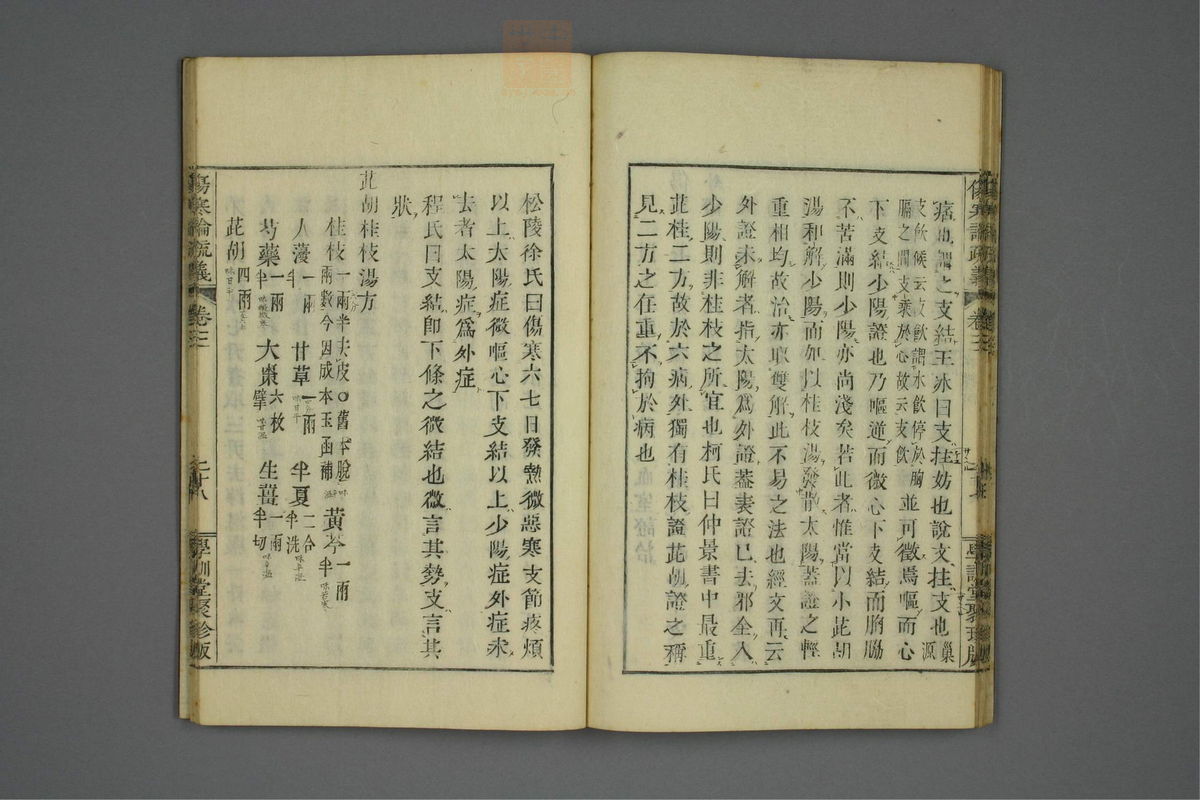 痞也謂之支結王冰曰支拄妨也說文拄支也巢源
支飲候云支飲謂水飲停於胸
膈之間支乘於心故云支飲並可徵焉嘔而心
下支結少陽證也乃嘔逆而微心下支結而胸脇
不苦滿則少陽亦尚淺矣若此者惟當以小茈胡
湯和解少陽而加以桂枝湯發散太陽蓋證之輕
重相均故治亦取雙解此不易之法也經文再云
外證未解者指太陽爲外證蓋表證已去邪全入
少陽則非桂枝之所宜也柯氏曰仲景書中最重
茈桂二方故於六病外獨有桂枝證茈胡證之稱
見二方之任重不拘於病也
松陵徐氏曰傷寒六七日發熱微惡寒支節疼煩
以上太陽症微嘔心下支結以上少陽症外症未
去者太陽症爲外症
程氏曰支結即下條之微結也微言其勢支言其
狀
茈胡桂枝湯方
桂枝一兩半去皮○舊本脫
兩數今因成本玉函補 黃芩一兩半
人蓡一兩半 甘草一兩 半夏二合半洗
芍藥一兩半 大棗六枚擘 生薑一兩半切
茈胡四兩
傷寒論疏義 卷三 二十八 學訓堂聚珍版